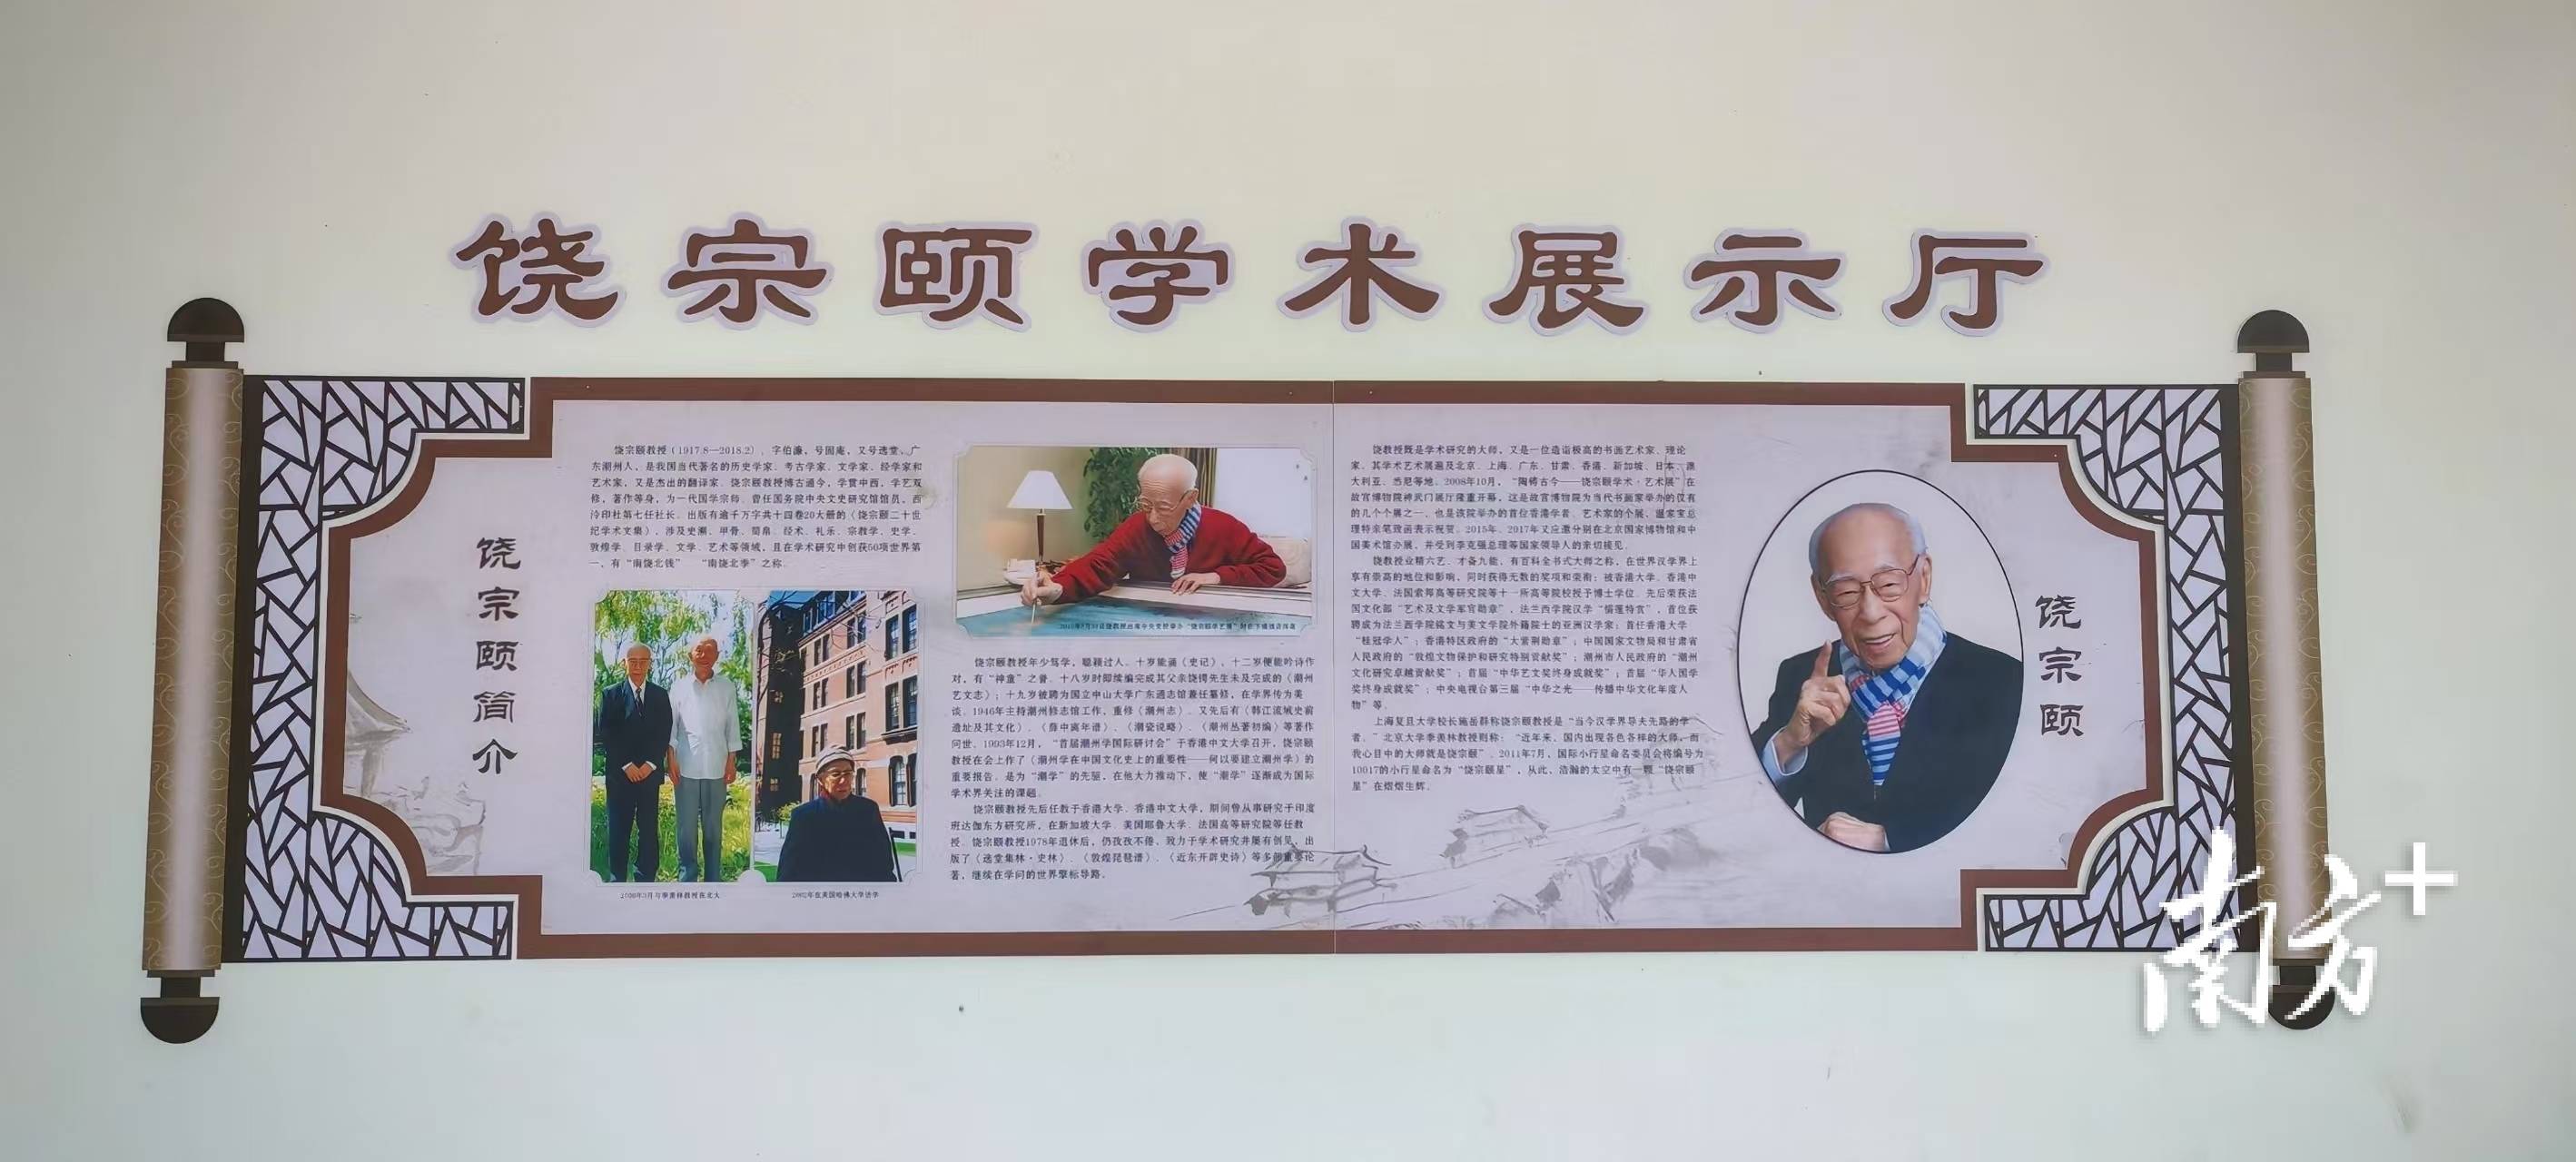 饶宗颐学术展示厅
饶宗颐简介
饶宗颐教授(1917.8—2018.2)，字伯濂，号固庵，又号选堂，广
东潮州人，是我国当代著名的历史学家、考古学家、文学家、经学家和
艺术家，又是杰出的翻译家。饶宗颐教授博古通今，学贯中西，学艺双
修，著作等身，为一代国学宗师。曾任国务院中央文史研究馆馆员，西
泠印社第七任社长。出版有逾千万字共十四卷20大册的《饶宗颐二十世
纪学术文集》，涉及史溯、甲骨、简帛、经术、礼乐、宗教学、史学、
敦煌学、目录学、文学、艺术等领域，且在学术研究中创获50项世界第
一，有“南饶北钱” “南饶北季”之称。
2000年3月与季羡林教授在北大
2002年在美国哈佛大学访学
饶宗颐教授年少笃学，聪颖过人。十岁能诵《史记》，十二岁便能吟诗作
对，有“神童”之誉。十八岁时即续编完成其父亲饶锷先生未及完成的《潮州
艺文志》；十九岁被聘为国立中山大学广东通志馆兼任纂修，在学界传为美
谈。1946年主持潮州修志馆工作，重修《潮州志》。又先后有《韩江流域史前
遗址及其文化》、《薛中离年谱》、《潮瓷说略》、《潮州丛著初编》等著作
问世。1993年12月，“首届潮州学国际研讨会”于香港中文大学召开，饶宗颐
教授在会上作了《潮州学在中国文化史上的重要性——何以要建立潮州学》的
重要报告。是为“潮学”的先驱。在他大力推动下，使“潮学”逐渐成为国际
学术界关注的课题。
饶宗颐教授先后任教于香港大学、香港中文大学，期间曾从事研究于印度
班达伽东方研究所，在新加坡大学、美国耶鲁大学、法国高等研究院等任教
授。饶宗颐教授1978年退休后，仍孜孜不倦，致力于学术研究并屡有创见，出
版了《选堂集林·史林》、《敦煌琵琶谱》、《近东开辟史诗》等多部重要论
著，继续在学问的世界擎标导路。
饶教授既是学术研究的大师，又是一位造诣极高的书画艺术家、理论
家。其学术艺术展遍及北京、上海、广东、甘肃、香港、新加坡、日本、澳
大利亚、悉尼等地。2008年10月，“陶铸古今——饶宗颐学术·艺术展”在
故宫博物院神武门展厅隆重开幕，这是故宫博物院为当代书画家举办的仅有
的几个个展之一，也是该院举办的首位香港学者、艺术家的个展，温家宝总
理特亲笔致函表示祝贺。2015年、2017年又应邀分别在北京国家博物馆和中
国美术馆办展，并受到李克强总理等国家领导人的亲切接见。
饶教授业精六艺、才备九能，有百科全书式大师之称，在世界汉学界上
享有崇高的地位和影响，同时获得无数的奖项和荣衔：被香港大学、香港中
文大学、法国索邦高等研究院等十一所高等院校授予博士学位。先后荣获法
国文化部“艺术及文学军官勋章”，法兰西学院汉学“儒莲特赏”，首位获
聘成为法兰西学院铭文与美文学院外籍院士的亚洲汉学家；首任香港大学
“桂冠学人”；香港特区政府的“大紫荆勋章”；中国国家文物局和甘肃省
人民政府的“敦煌文物保护和研究特别贡献奖”；潮州市人民政府的“潮州
文化研究卓越贡献奖”；首届“中华艺文奖终身成就奖”；首届“华人国学
奖终身成就奖”；中央电视台第三届“中华之光——传播中华文化年度人
物”等。
上海复旦大学校长施岳群称饶宗颐教授是“当今汉学界导夫先路的学
者。”北京大学季羡林教授则称：“近年来，国内出现各色各样的大师，而
我心目中的大师就是饶宗颐”。2011年7月，国际小行星命名委员会将编号为
10017的小行星命名为“饶宗颐星”，从此，浩瀚的太空中有一颗“饶宗颐
星”在熠熠生辉。
饶宗颐
南方+